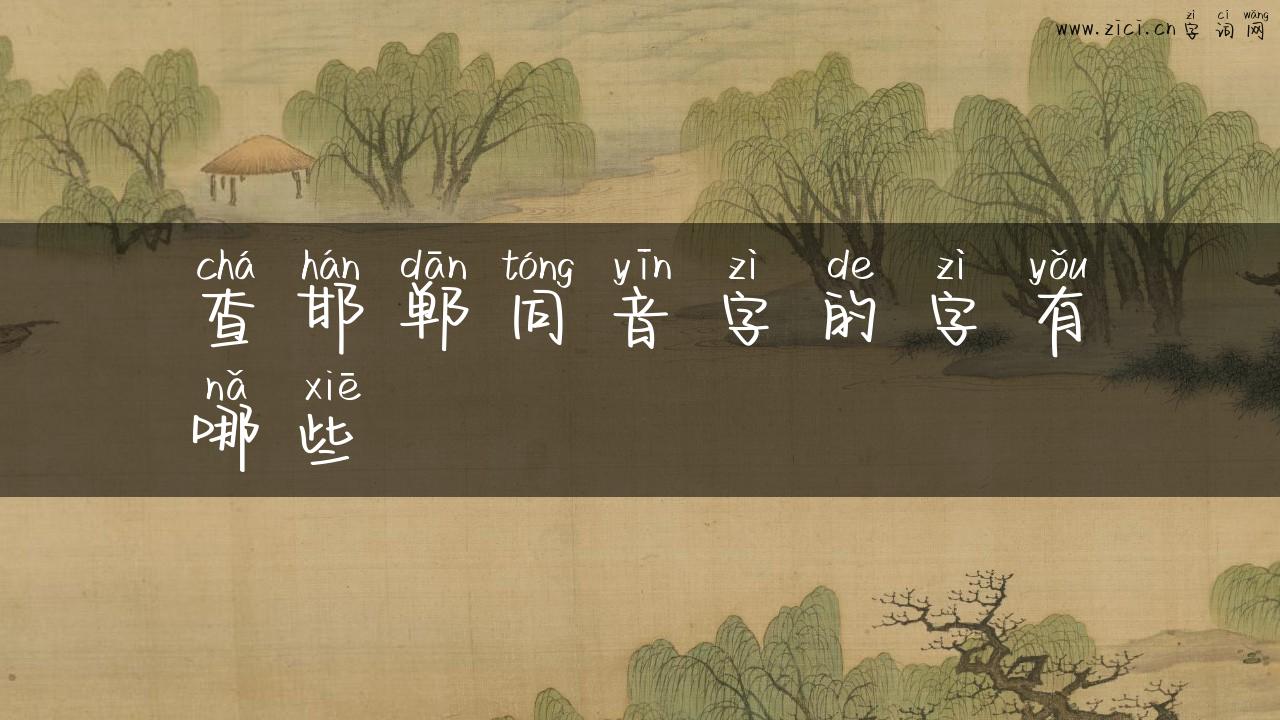 zì cí wǎng
www.zici.cn字词网
chá hán dān tóng yīn zì de zì yǒu
查邯郸同音字的字有
nǎ xiē
哪些